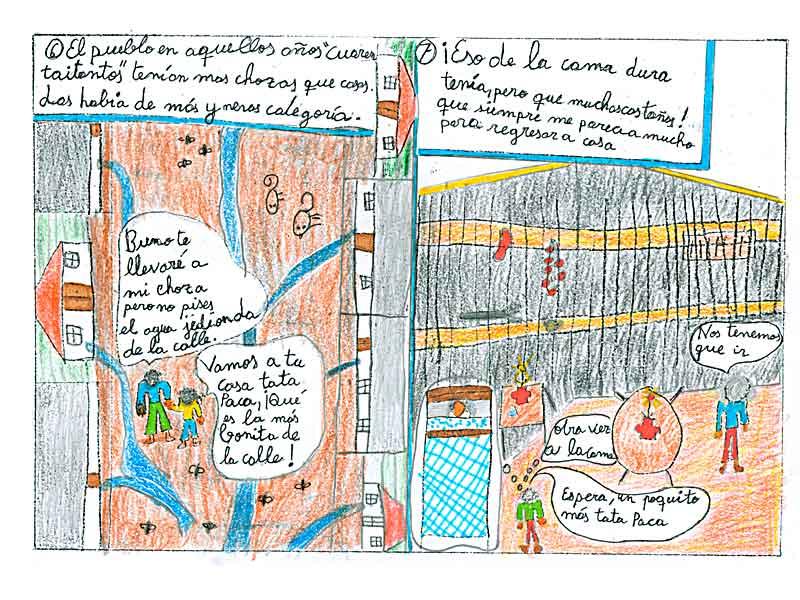 ⑥ El pueblo en aquellos años "cuaren
taitantos" tenían mas chozas que casas.
Las había de más y neros categoría.
Bueno te
llevaré a
mi choza
pero no pises
el agua jedionda
de la calle.
Vamos a tu
casa tata
Paca, ¡Qué
es la más
bonita de
la calle!
⑦ ¡Eso de la cama dura
tenía, pero que muchas castañas!
que siempre me parecía mucho
para regresar a casa
Nos tenemos
que ir
otra vez
a la cama
Espera, un poquito
más tata Paca